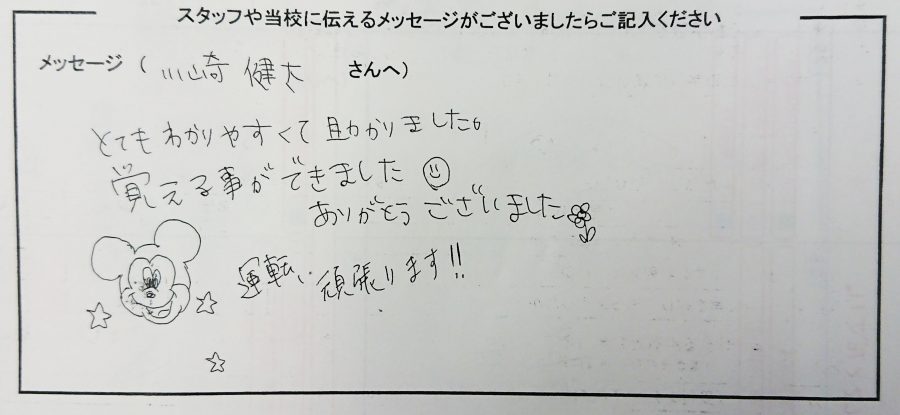 スタッフや当校に伝えるメッセージがございましたらご記入ください
メッセージ ( 川崎 健太 さんへ)
とてもわかりやすくて助かりました。
覚える事ができました
ありがとうございました
運転、頑張ります!!